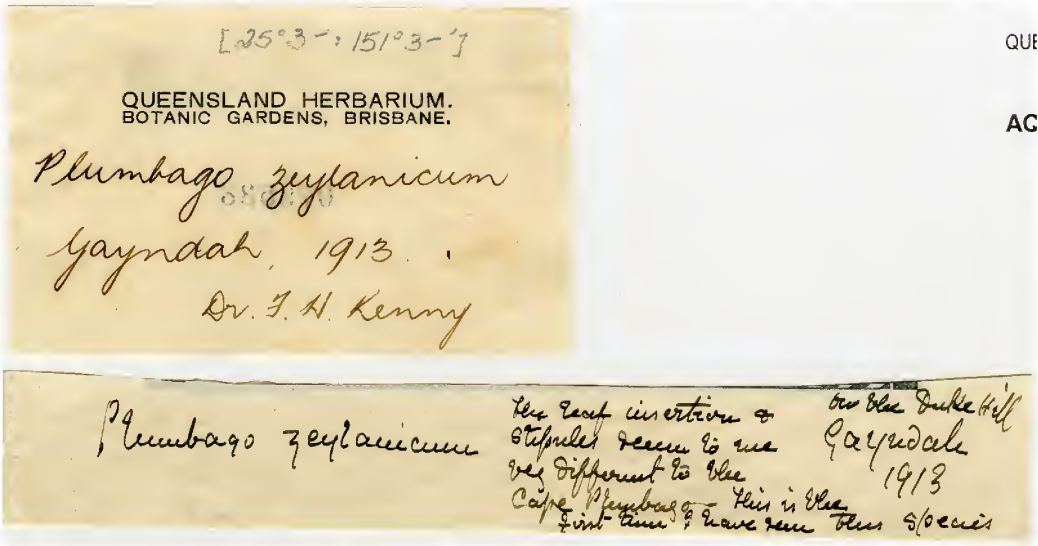 [25°3-': 151°3-']
QUE
QUEENSLAND HERBARIUM.
BOTANIC GARDENS, BRISBANE.
AQ
Plumbago zeylanicum
Gayndah, 1913.
Dr. F. H. Kenny
Plumbago zeylanicum
the leaf insertion &
stipules seem to me
very different to the
Cape Plumbago - this is the
first time I have seen this species
on the Duke Hill
Gayndah
1913